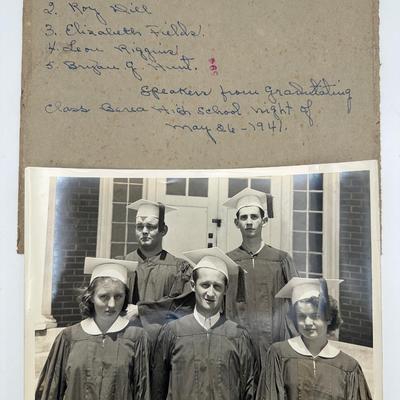 2. Roy Dill
3. Elizabeth Fields.
4. Leon Riggins.
5. Bryan G. Hunt.
Speakers from Graduating
Class Berea High School night of
May 26-1941.